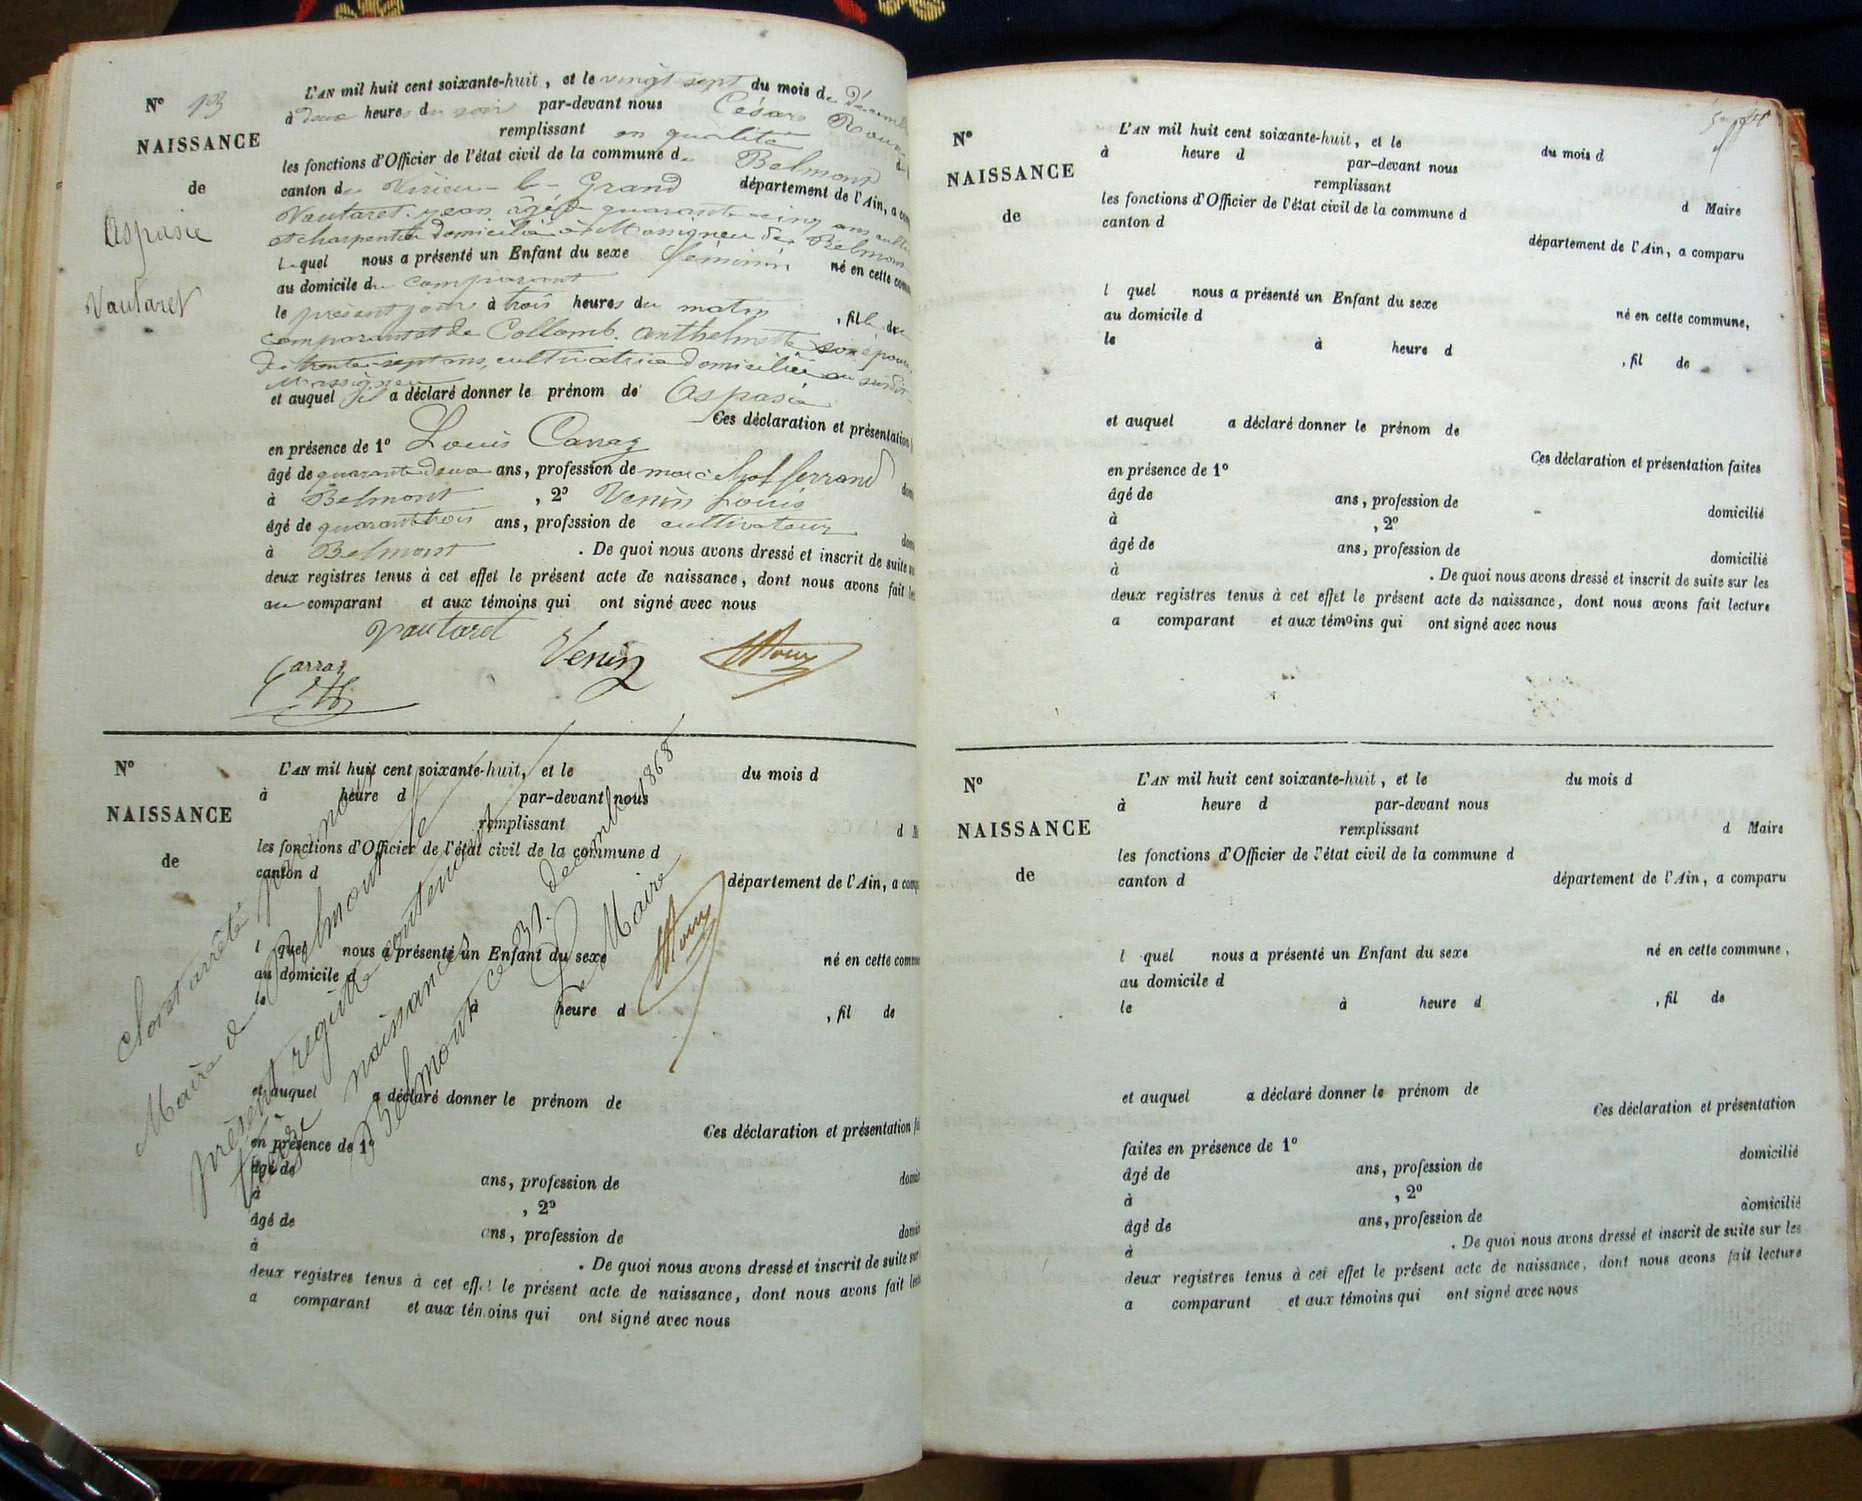 N° 13
NAISSANCE
de
Aspasie
Vautaret
L'AN mil huit cent soixante-huit, et le vingt sept du mois de décembre
à deux heures du soir par-devant nous César Roux
remplissant en qualité d
les fonctions d'Officier de l'état civil de la commune de Belmont
canton de Virieu-le-Grand département de l'Ain, a com
Vautaret jean âgé de quarante cinq ans culti
et charpentier domicilié à Massigneu de Belmont
lequel nous a présenté un Enfant du sexe féminin né en cette comm
au domicile du comparant
le présent jour à trois heures du matin , fille du
comparant et de Collomb anthelmette son épouse
de trente sept ans, cultivatrice domiciliée au susdit
Massigneu
et auquel il a déclaré donner le prénom de Aspasie
Ces déclaration et présentation
en présence de 1° Louis Carraz
âgé de quarante deux ans, profession de marechal ferrand domi
à Belmont , 2° Venin Louis
âgé de quarante trois ans, profession de cultivateur domi
à Belmont . De quoi nous avons dressé et inscrit de suite su
deux registres tenus à cet effet le présent acte de naissance, dont nous avons fait lec
au comparant et aux témoins qui ont signé avec nous
Vautaret
Carraz Venin Roux
N°
NAISSANCE
de
L'AN mil huit cent soixante-huit, et le du mois d
à heure d par-devant nous
remplissant d M
les fonctions d'Officier de l'état civil de la commune d
canton d département de l'Ain, a comp
l quel nous a présenté un Enfant du sexe né en cette commu
au domicile d
le à heure d , fil de
et auquel a déclaré donner le prénom de
Ces déclaration et présentation fai
en présence de 1°
âgé de ans, profession de domici
à , 2°
âgé de ans, profession de domici
à . De quoi nous avons dressé et inscrit de suite sur
deux registres tenus à cet effet le présent acte de naissance, dont nous avons fait lect
a comparant et aux témoins qui ont signé avec nous
Clos et arrêté par nous
Maire de Belmont le
présent registre contenant
treize naissances
Belmont ce 31 décembre 1868
Le Maire
Roux
N°
NAISSANCE
de
L'AN mil huit cent soixante-huit, et le du mois d
à heure d par-devant nous
remplissant d Maire
les fonctions d'Officier de l'état civil de la commune d
canton d département de l'Ain, a comparu
l quel nous a présenté un Enfant du sexe né en cette commune,
au domicile d
le à heure d , fil de
et auquel a déclaré donner le prénom de
Ces déclaration et présentation faites
en présence de 1°
âgé de ans, profession de domicilié
à , 2°
âgé de ans, profession de domicilié
à . De quoi nous avons dressé et inscrit de suite sur les
deux registres tenus à cet effet le présent acte de naissance, dont nous avons fait lecture
a comparant et aux témoins qui ont signé avec nous
N°
NAISSANCE
de
L'AN mil huit cent soixante-huit, et le du mois d
à heure d par-devant nous
remplissant d Maire
les fonctions d'Officier de l'état civil de la commune d
canton d département de l'Ain, a comparu
l quel nous a présenté un Enfant du sexe né en cette commune,
au domicile d
le à heure d , fil de
et auquel a déclaré donner le prénom de
Ces déclaration et présentation
faites en présence de 1°
âgé de ans, profession de domicilié
à , 2°
âgé de ans, profession de domicilié
à . De quoi nous avons dressé et inscrit de suite sur les
deux registres tenus à cet effet le présent acte de naissance, dont nous avons fait lecture
a comparant et aux témoins qui ont signé avec nous